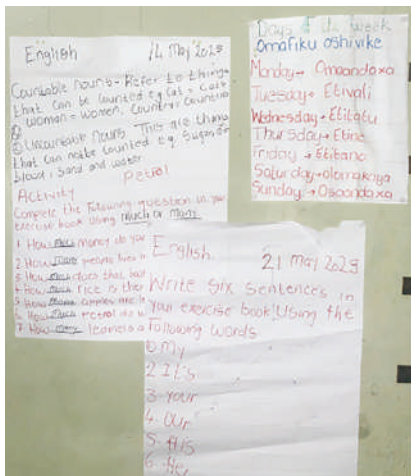 English 14 May 2025
Countable nouns - Refer to things
that can be counted e.g Cat = Cats
woman = women, Country = Countries
Uncountable nouns This are things
that can not be counted e.g. Sugar, oil
blood, Sand and water
Petrol
Activity
Complete the following question in your
exercise book using much or many
1 How much money do you
2 How many people lives in
3 How much does that
4 How much rice is there
5 How many apples are
6 How much Petrol do
7 How many learners
Days of the week
Omafiku oshivike
Monday → Omaandaxa
Tuesday → Etivali
Wednesday → Etitatu
Thursday → Etine
Friday → Etitano
Saturday → olomakaya
Sunday → Osoondaxa
English 21 May 2025
Write six sentences in
your exercise book Using the
following words
1. My
2. It's
3. your
4. Our
5. His
6. Her